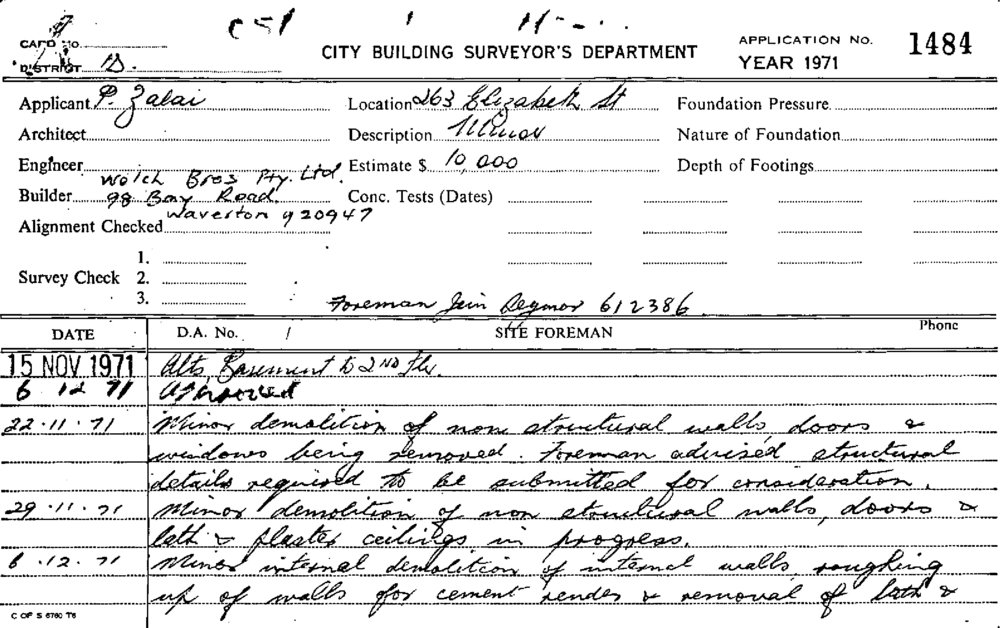 CS1
CARD NO.
DISTRICT D.
CITY BUILDING SURVEYOR'S DEPARTMENT
APPLICATION NO. 1484
YEAR 1971
Applicant P. Zalai Location 263 Elizabeth St Foundation Pressure
Architect Description Minor Nature of Foundation
Engineer Estimate $ 10,000 Depth of Footings
Welch Bros Pty. Ltd.
Builder 98 Bay Road. Conc. Tests (Dates)
Waverton 920947
Alignment Checked
1.
Survey Check 2.
3.
Foreman 612386
DATE D.A. No. / SITE FOREMAN Phone
15 NOV 1971 Alts Basement to 2ND Flr.
6 12 71 Approved
22.11.71 Minor demolition of non structural walls, doors &
windows being removed. Foreman advised structural
details required to be submitted for consideration.
29.11.71 Minor demolition of non structural walls, doors &
lath & plaster ceilings in progress.
6.12.71 Minor internal demolition of internal walls, roughing
up of walls for cement render & removal of lath &
C OF S 6760 T6